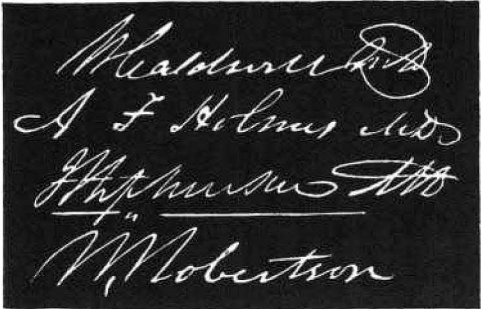 W Caldwell M.D.
A F Holmes M.D.
J Stephenson MD
W, Robertson